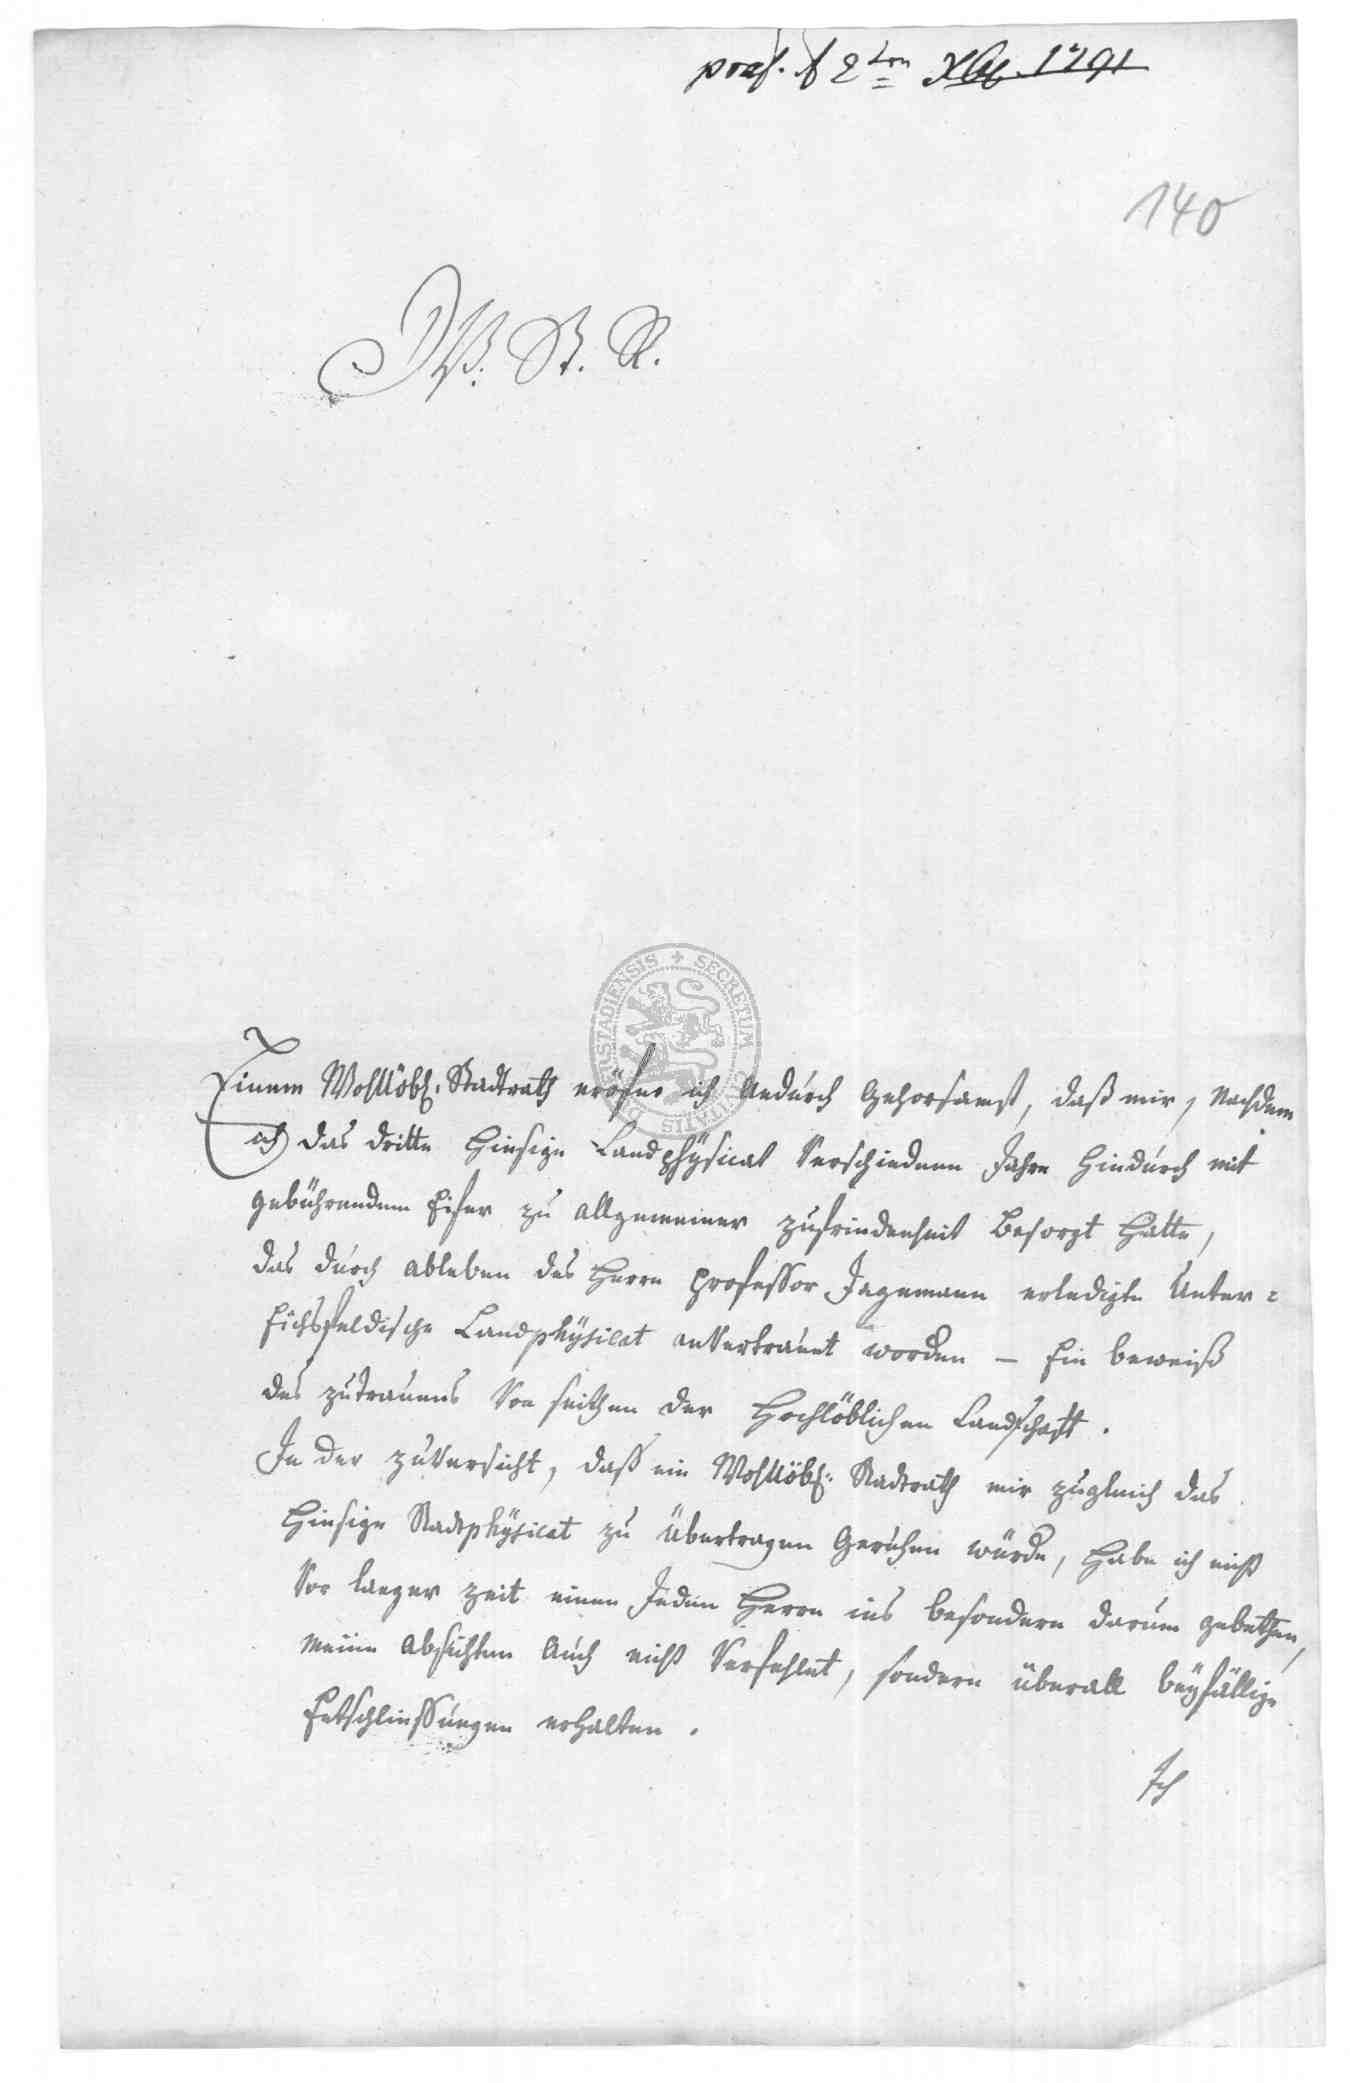 praes. d 2ten Xbr. 1791
140
W. St. R.
SECRETUM CIVITATIS
Einem Wohllöbl: Stadtrath eröfne ich andurch Gehorsamst, daß mir, Nachdem
ich das dritte Hiesige Landphÿsicat Verschiedene Jahre Hindurch mit
gebührendem Eifer zu allgemeiner zufriedenheit Besorgt Hatte,
das durch ableben des Herrn professor Jagemann erledigte Unter=
Eichsfeldische Landphÿsicat anVertrauet worden – Ein beweiß
des zutrauens Von seithen der Hochlöblichen Landschaft.
In der zuVersicht, daß ein Wohllöbl: Stadtrath mir zugleich das
Hiesige Stadtphÿsicat zu Übertragen Geruhen würde, Habe ich nicht
Vor langer zeit einen Jeden Herrn ins besondere darum gebethen,
meine absichten Auch nicht Verfehlet, sondern überall beÿfällige
Entschliessungen erhalten.
Ich